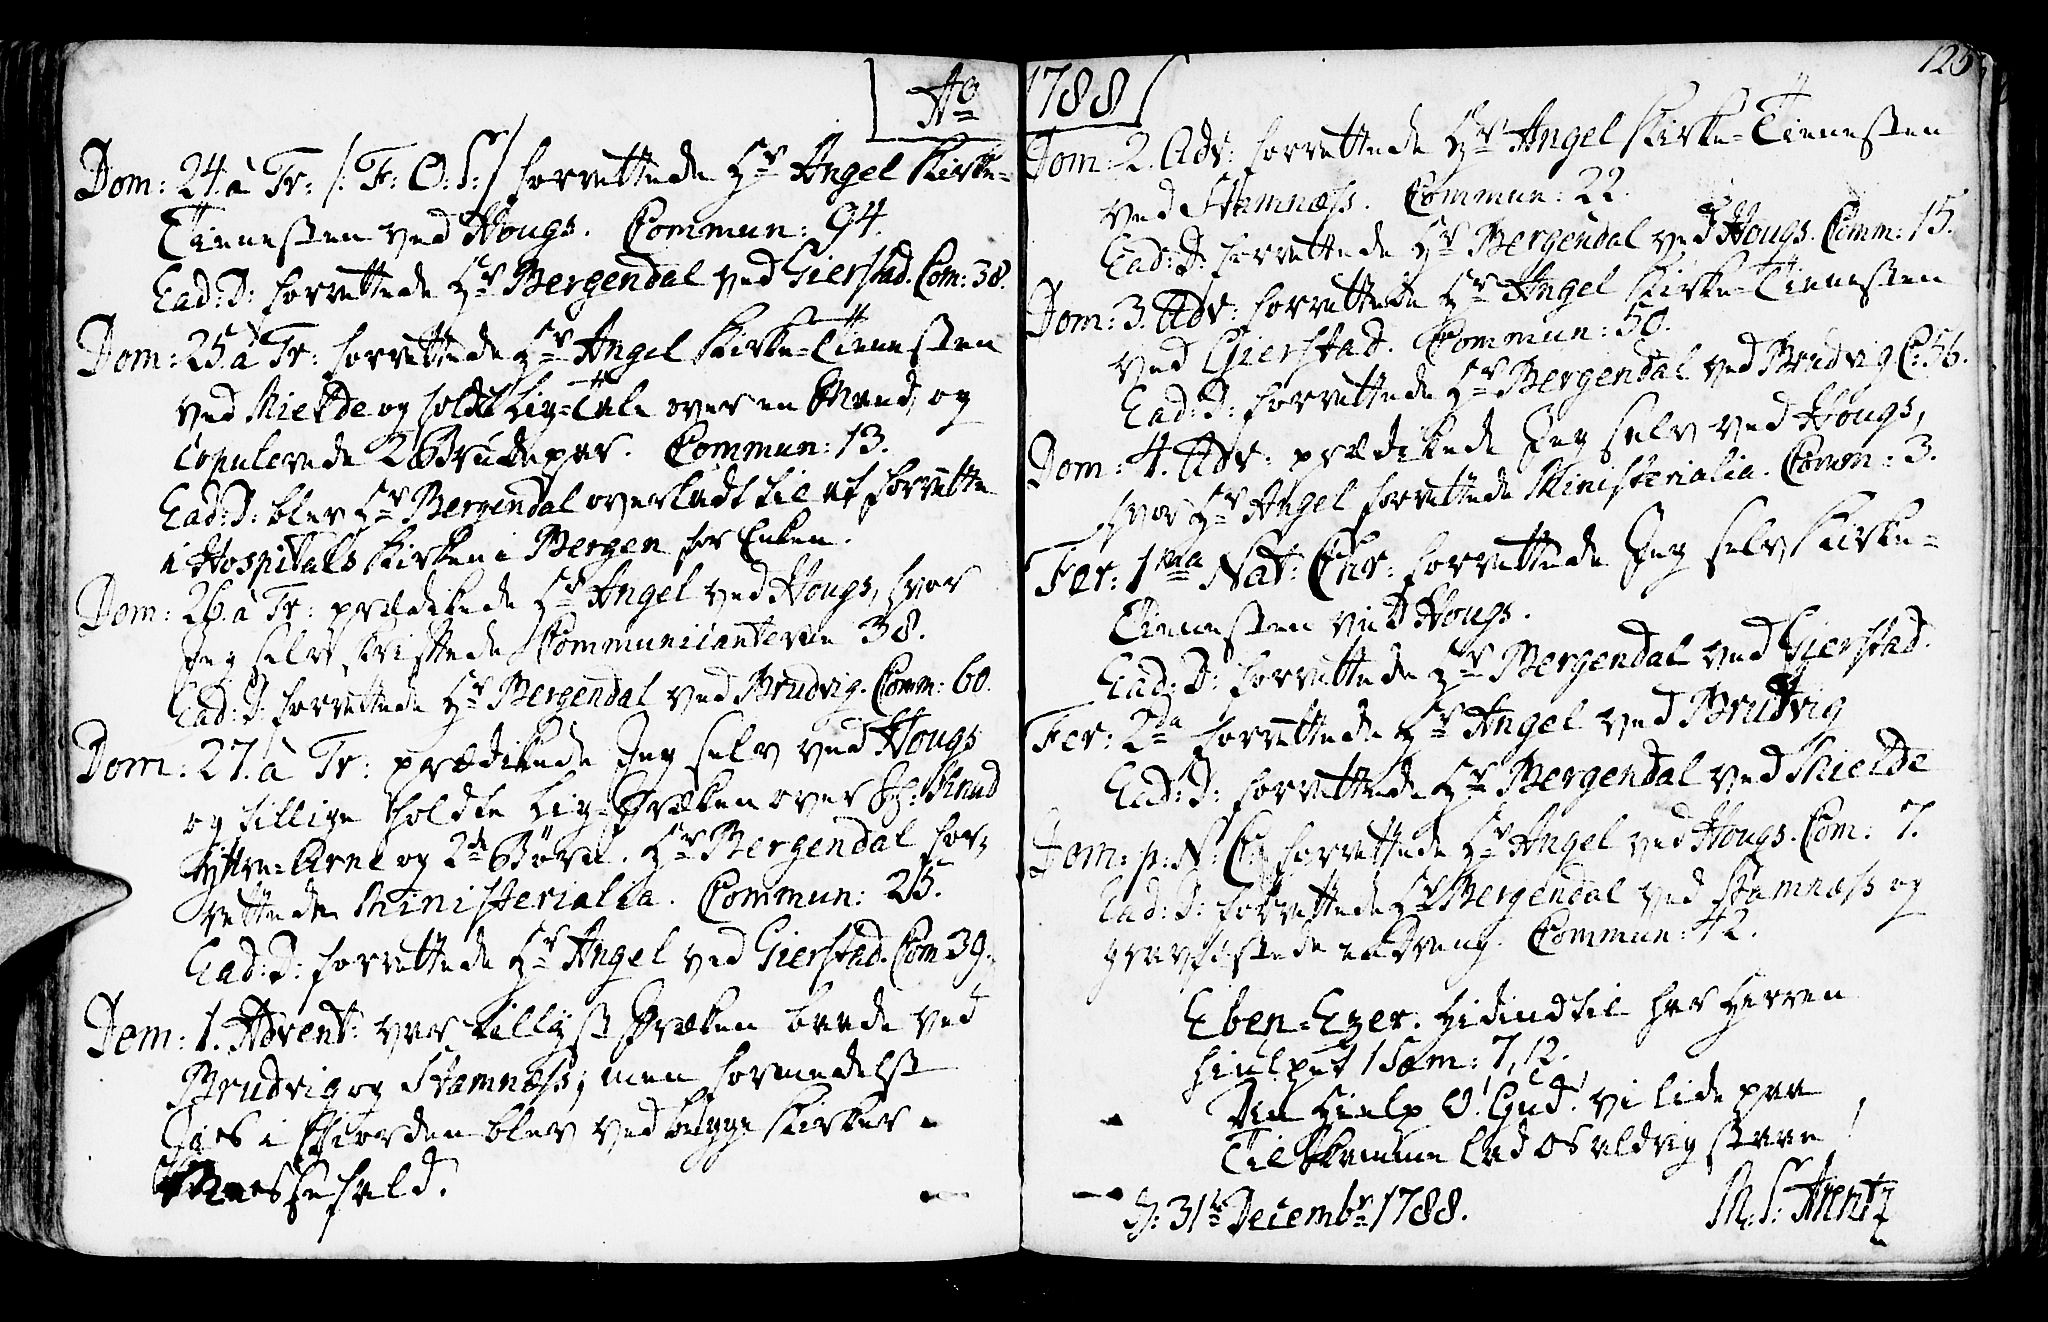 Ao
Dom: 24. à Tr: /: F: O: S: / forrettede Hr Angel Kirke-
Tienesten ved Hougs. Commun: 94.
Ead: D: forrettede Hr Bergendal ved Gierstad. Com: 38.
Dom: 25. à Tr: forrettede Hr Angel Kirke-Tienesten
ved Mielde og holdt Lig-Tale over en Mand, og
copulerede 2 Brudepar. Commun: 13.
Ead: D: blev Hr Bergendal overladt til at forrette
i Hospitals Kirken i Bergen for Enken.
Dom: 26. à Tr: prædikede Hr Angel ved Hougs, hvor
Jeg selv skriftede Communicanterne 38.
Ead: D: forrettede Hr Bergendal ved Brudvig. Comm: 60.
Dom: 27. à Tr: prædikede Jeg selv ved Hougs
og tillige holdte Lig-Præken over Knud
Ytre-Arne og 2de Börn. Hr Bergendal for-
rettede Ministerialia. Commun: 25.
Ead: D: forrettede Hr Angel ved Gierstad. Com 39.
Dom: 1. Advent: var tillyst Præken baade ved
Brudvig og Stamness; men formedelst
Iis i Fiorden blev ved begge Kirker
Messefald.
1788
125
Dom: 2. Adv: forrettede Hr Angel Kirke-Tienesten
ved Stamness. Commun: 22.
Ead: D: forrettede Hr Bergendal ved Hougs. Comm: 15.
Dom: 3. Adv: forrettede Hr Angel Kirke-Tienesten
ved Gierstad. Commun: 50.
Ead: D: forrettede Hr Bergendal ved Brudvig C: 56.
Dom: 4. Adv: prædikede Jeg selv ved Hougs,
hvor Hr Angel forrettede Ministerialia. Comm: 3.
Fer: 1ma Nat: Chr: forrettede Jeg selv Kirke-
Tienesten ved Hougs.
Ead: D: forrettede Hr Bergendal ved Gierstad.
Fer: 2da forrettede Hr Angel ved Brudvig
Ead: D: forrettede Hr Bergendal ved Mielde
Dom: p: N: C: forrettede Hr Angel ved Hougs. Com: 7.
Ead: D: forrettede Hr Bergendal ved Stamness og
gravfæstede en Dreng. Commun: 42.
Eben-Ezer. Hidindtil har Herren
hiulpet 1 Sam: 7, 12.
Din Hielp O! Gud! vi lide paa
Til Skamme lad os aldrig staae!
d: 31te Decembr 1788.
M. S. Arentz